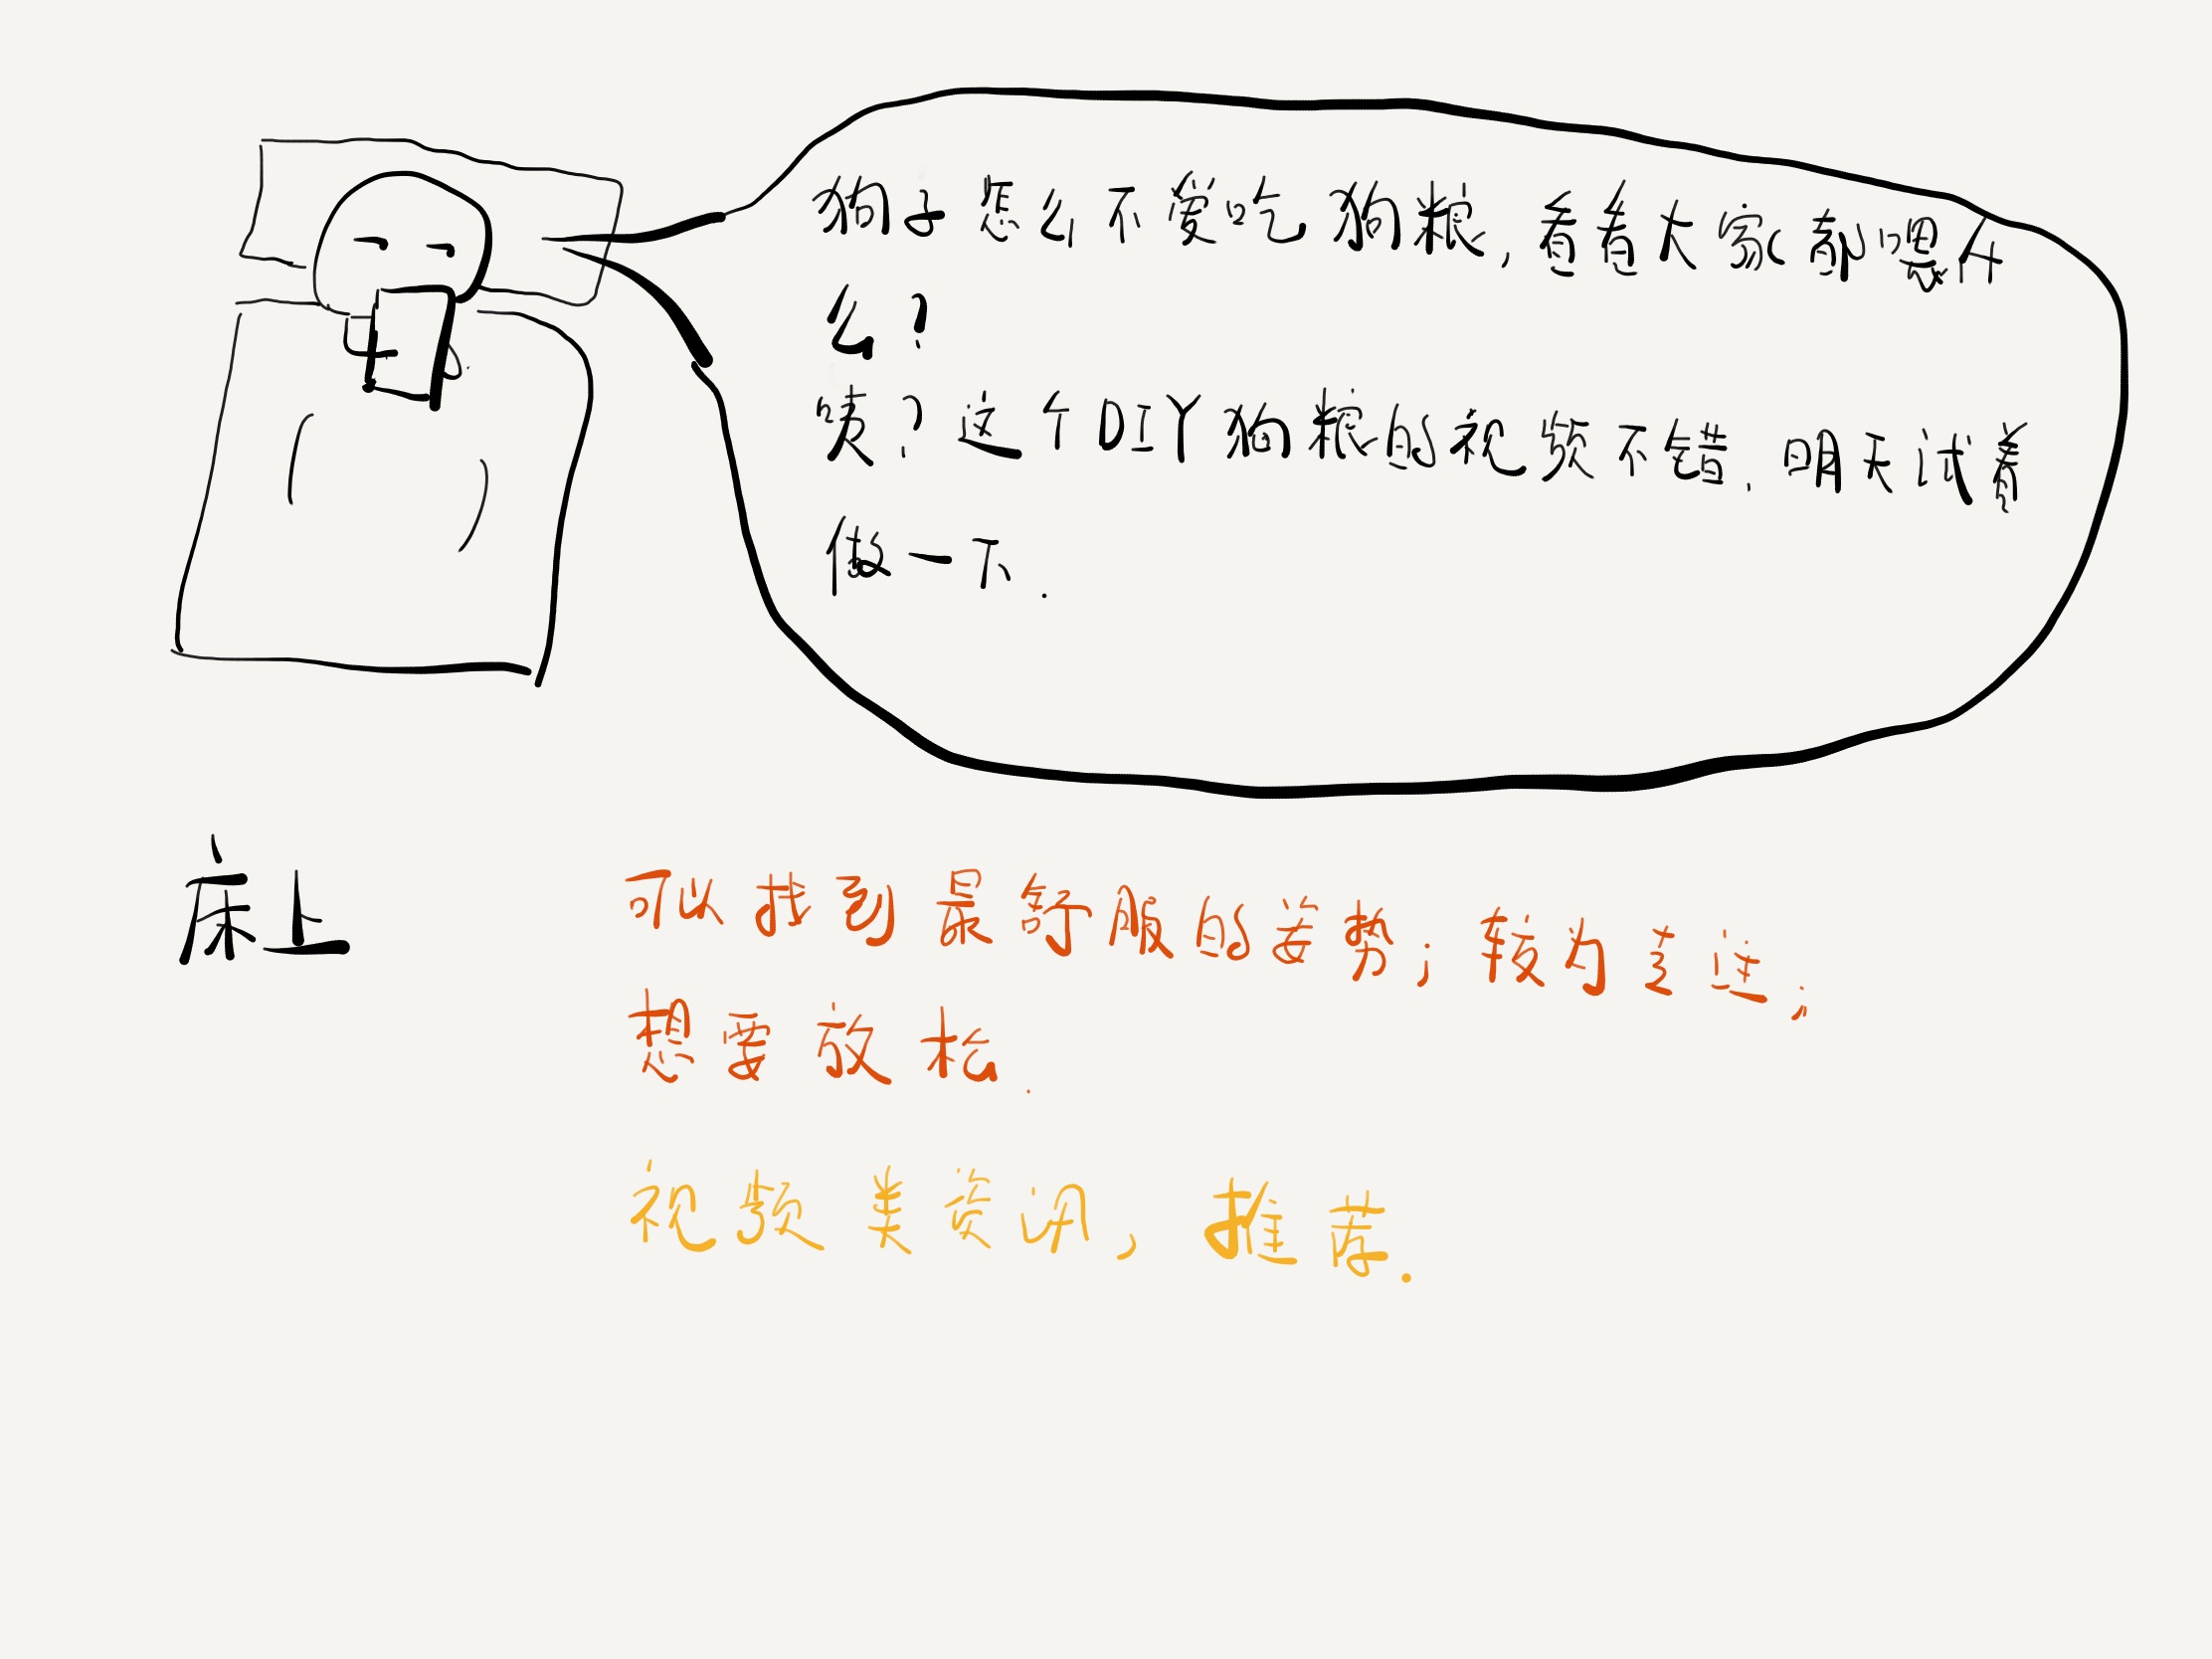 狗子怎么不爱吃狗粮,看看大家都喂什
么?
咦?这个DIY狗粮的视频不错.明天试着
做一下.
床上
可以找到最舒服的姿势;较为专注;
想要放松.
视频类资讯,推荐.